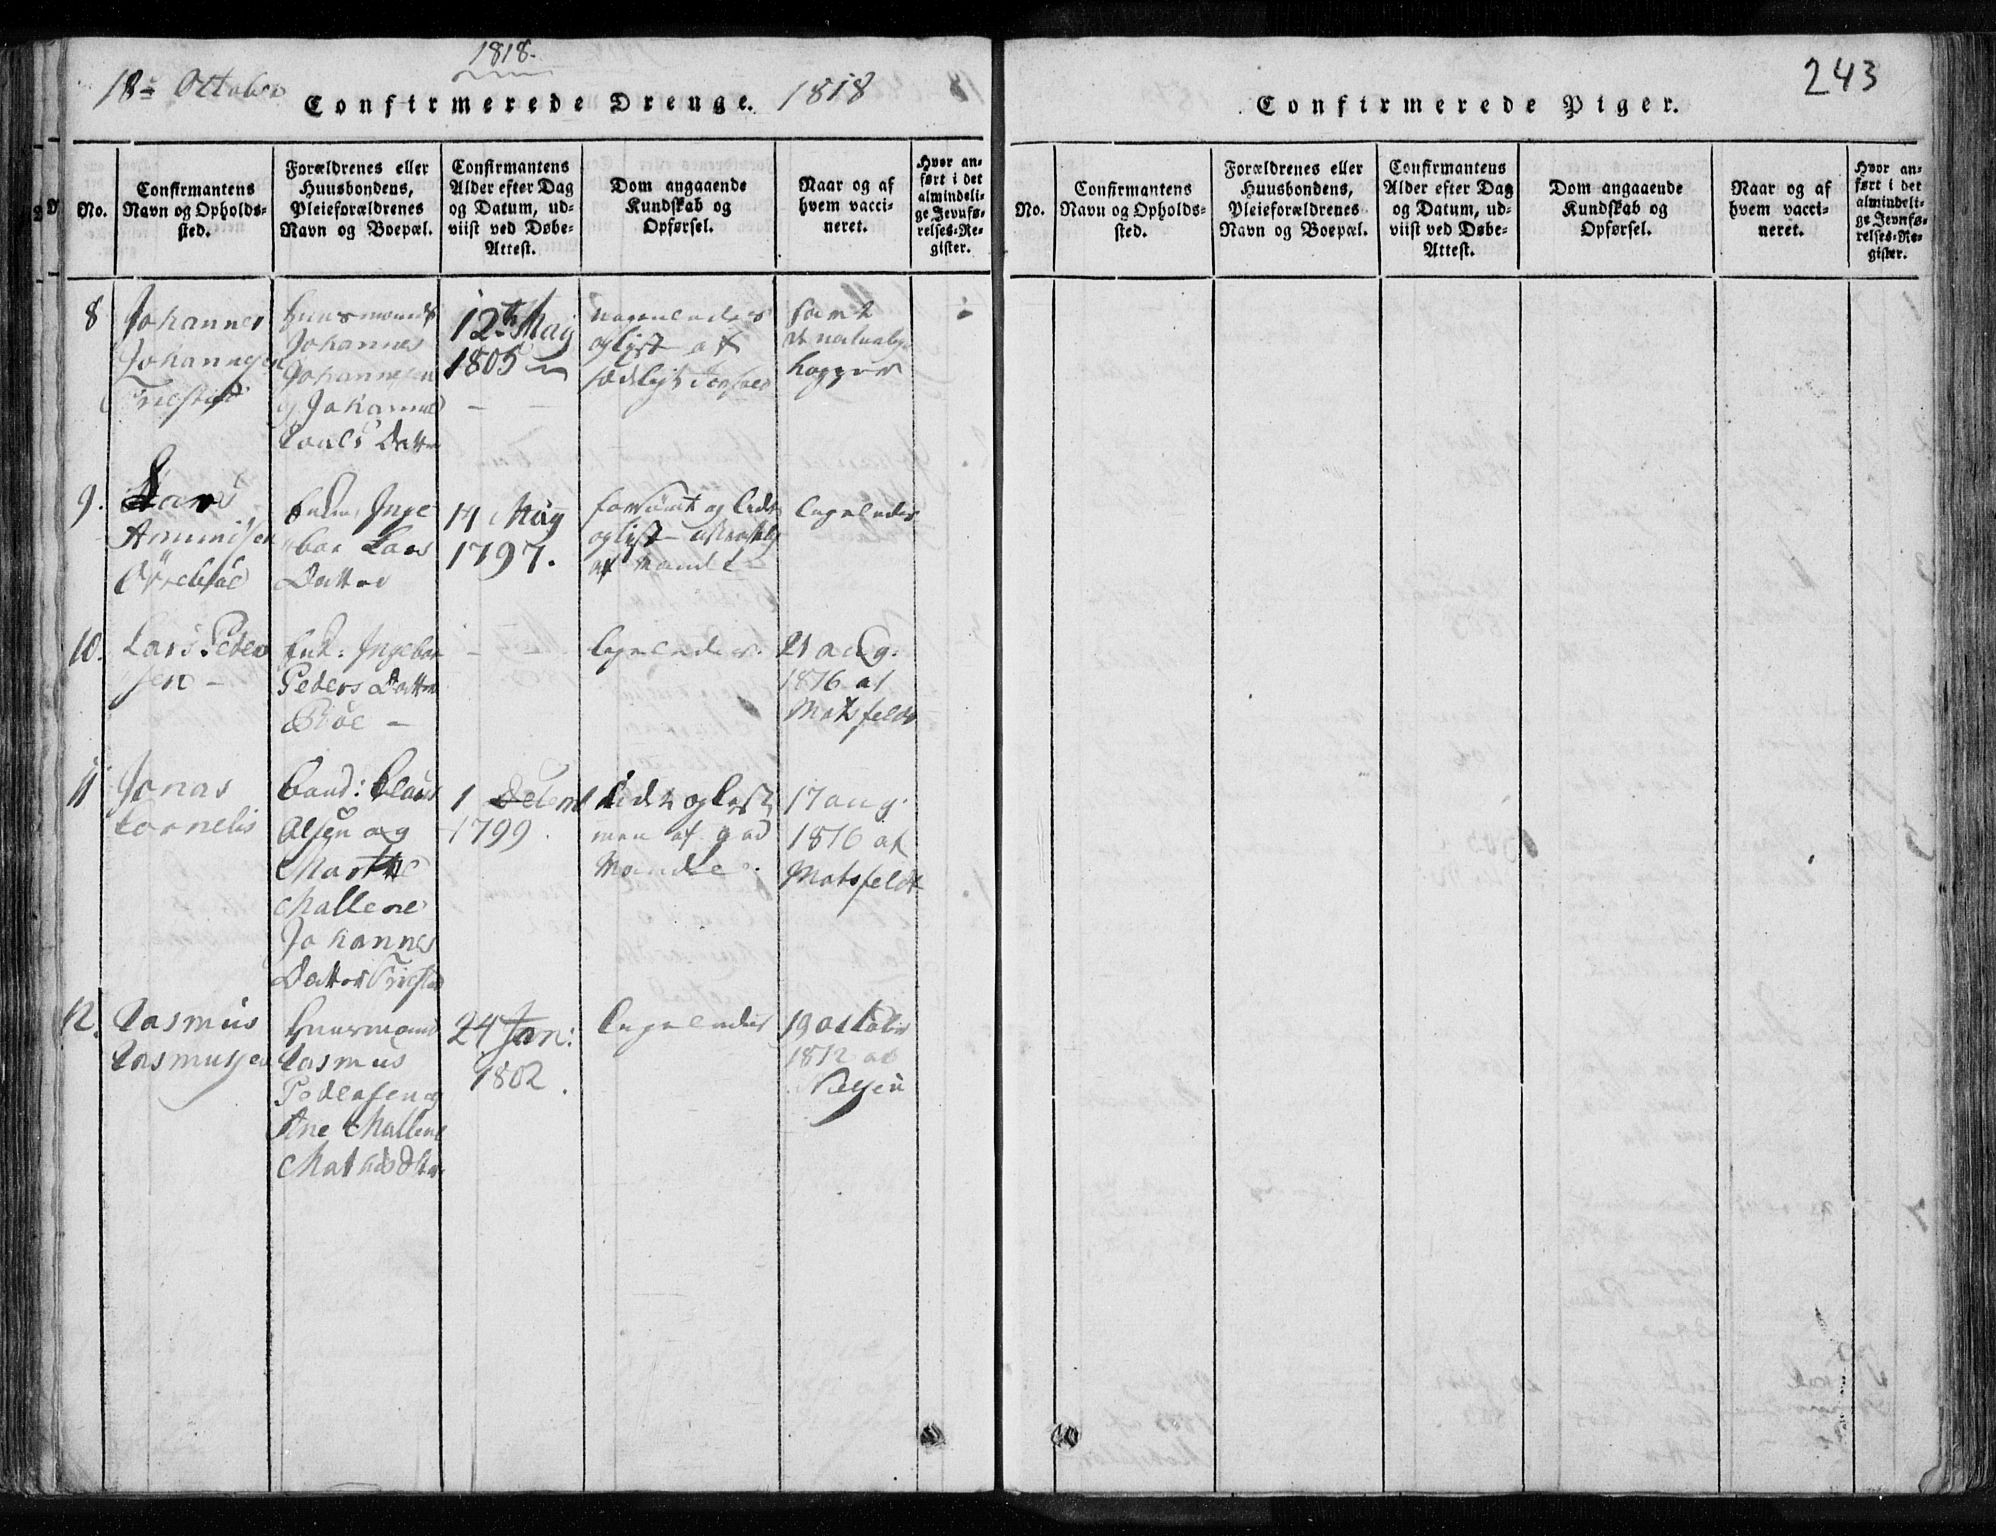 1818.
18de October
Confirmerede Drenge. 1818
No.
Confirmantens
Navn og Opholds-
sted.
Forældrenes eller
Huusbondens,
Pleieforældrenes
Navn og Boepæl.
Confirmantens
Alder efter Dag
og Datum, ud-
viist ved Døbe-
Attest.
Dom angaaende
Kundskab og
Opførsel.
Naar og af
hvem vacci-
neret.
Hvor an-
ført i det
almindeli-
ge Jevnfø-
relses-Re-
gister.
8
Johannes
Johannesen
Huusmand
Johannes
Johannesen
og Johanne
Pouls Datter
12te Maij
1805
og lyst af
havt
de naturlige
Kopper
9.
Lars
Amundsen
Enke: Inge
bor Lars
Datter
Maij
1797.
og lyst
af Mandt
ligeledes
10.
Lars Peder
sen
Enk: Ingebor
Peders Datter
Bøe
ligeledes.
21 aug.
1816 af
Motsfeldt
11
Jonas
Cornelis
Gaard: Claus
Olsen og
Marthe
Mallene
Johannes
Datter
1 Decemb
1799.
og lyst
men af god
Mandt.
17 aug.
1816 af
Motsfeldt
12.
Rasmus
Rasmusen
Huusmand
Rasmus
Pedersen og
Ane Mallene
24 Jan:
1802.
ligeledes
19 octobr
1812 af
243
Confirmerede Piger.
No.
Confirmantens
Navn og Opholds-
sted.
Forældrenes eller
Huusbondens,
Pleieforældrenes
Navn og Boepæl.
Confirmantens
Alder efter Dag
og Datum, ud-
viist ved Døbe-
Attest.
Dom angaaende
Kundskab og
Opførsel.
Naar og af
hvem vacci-
neret.
Hvor an-
ført i det
almindeli-
ge Jevnfø-
relses-Re-
gister.